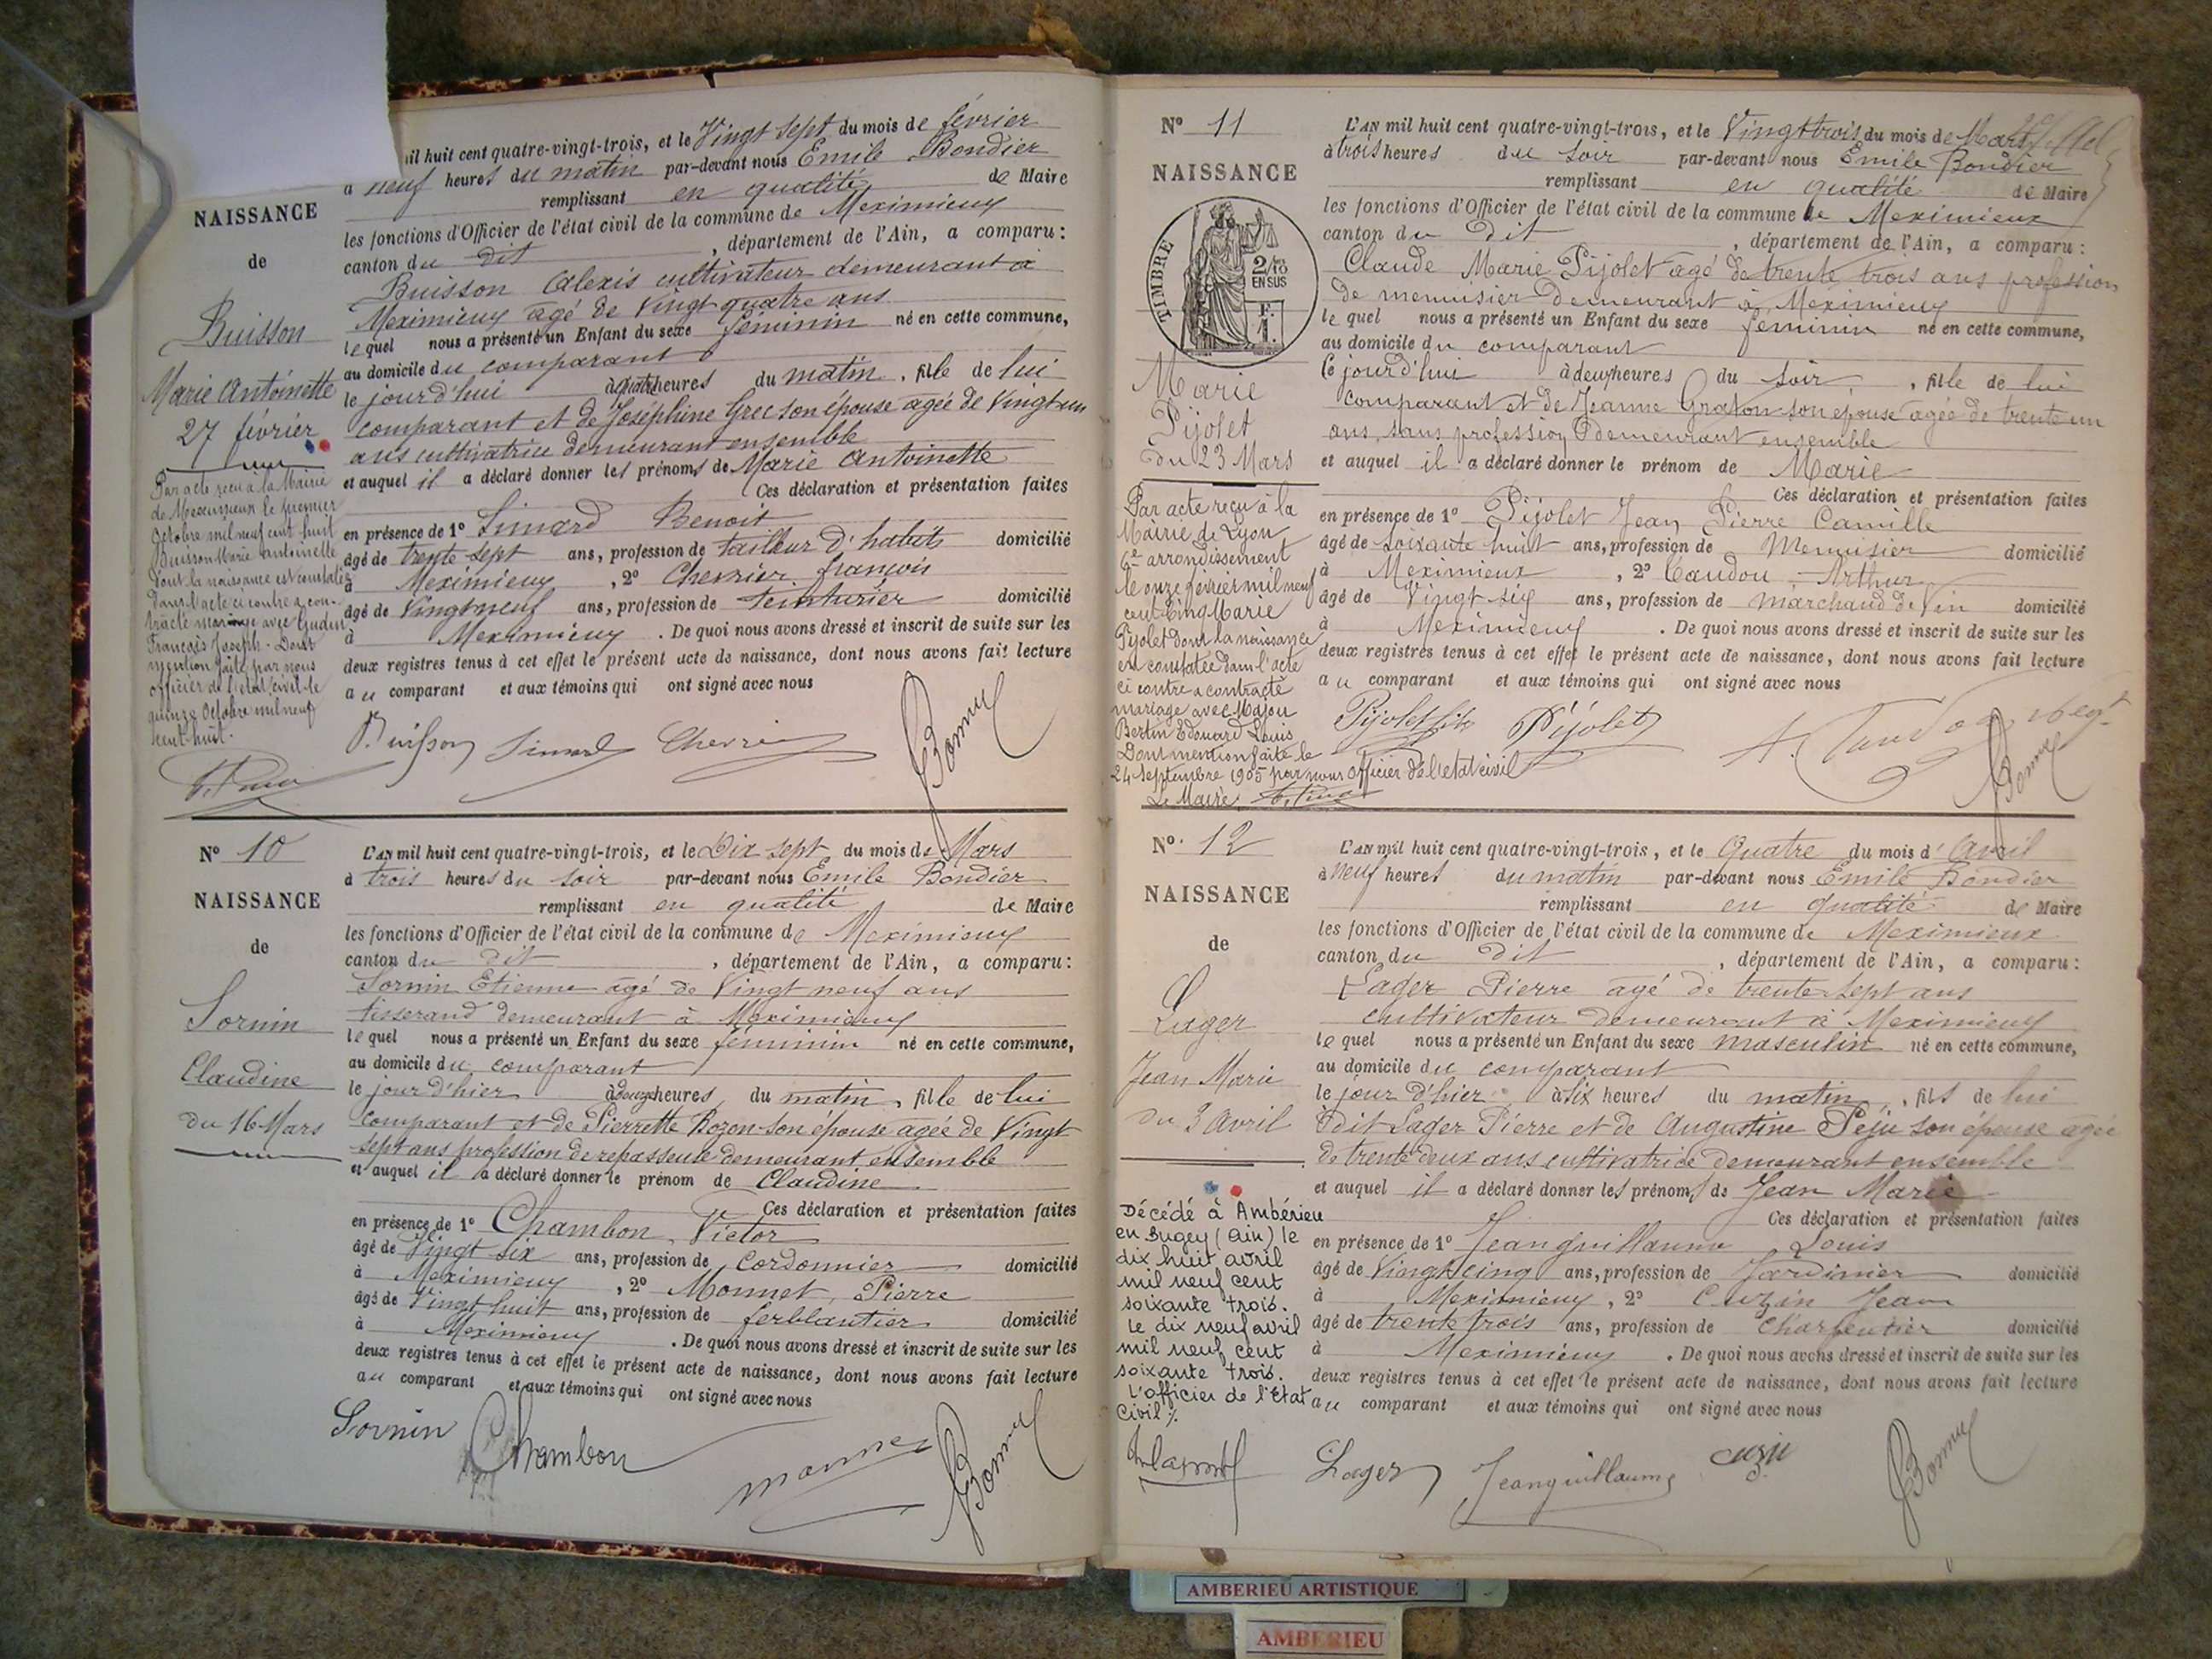 NAISSANCE
de
Buisson
Marie Antoinette
27 février
Par acte reçu à la Mairie
de Meximieux le premier
Octobre mil neuf cent huit
Buisson Marie Antoinette
dont la naissance est constatée
dans l'acte ci contre a con-
tracté mariage avec Gudin
François Joseph. Dont
mention faite par nous
officier de l'état civil le
quinze Octobre mil neuf
cent huit.
il huit cent quatre-vingt-trois, et le Vingt sept du mois de février
à neuf heures du matin par-devant nous Emile Bondier
remplissant en qualité de Maire
les fonctions d'Officier de l'état civil de la commune de Meximieux
canton du dit, département de l'Ain, a comparu:
Buisson Alexis cultivateur demeurant à
Meximieux âgé de Vingt quatre ans
lequel nous a présenté un Enfant du sexe féminin né en cette commune,
au domicile du comparant
le jour d'hui à quatre heures du matin, fille de lui
comparant et de Joséphine Grec son épouse agée de Vingt un
ans cultivatrice demeurant ensemble
et auquel il a déclaré donner les prénoms de Marie Antoinette
Ces déclaration et présentation faites
en présence de 1° Simard Benoit
âgé de trente sept ans, profession de tailleur d'habits domicilié
à Meximieux, 2° Chevrier françois
âgé de Vingt neuf ans, profession de teinturier domicilié
à Meximieux. De quoi nous avons dressé et inscrit de suite sur les
deux registres tenus à cet effet le présent acte de naissance, dont nous avons fait lecture
au comparant et aux témoins qui ont signé avec nous
Buisson Simard Chevrier
N° 10
NAISSANCE
de
Sornin
Claudine
du 16 Mars
L'AN mil huit cent quatre-vingt-trois, et le Dix sept du mois de Mars
à trois heures du soir par-devant nous Emile Bondier
remplissant en qualité de Maire
les fonctions d'Officier de l'état civil de la commune de Meximieux
canton du dit, département de l'Ain, a comparu:
Sornin Etienne agé de Vingt neuf ans
tisserand demeurant à Meximieux
lequel nous a présenté un Enfant du sexe féminin né en cette commune,
au domicile du comparant
le jour d'hier à heures du matin, fille de lui
comparant et de Pierrette Bozon son épouse agée de Vingt
sept ans profession de repasseuse demeurant ensemble
et auquel il a déclaré donner le prénom de Claudine
Ces déclaration et présentation faites
en présence de 1° Chambon Victor
âgé de Vingt six ans, profession de Cordonnier domicilié
à Meximieux, 2° Monnet Pierre
âgé de Vingt huit ans, profession de ferblantier domicilié
à Meximieux. De quoi nous avons dressé et inscrit de suite sur les
deux registres tenus à cet effet le présent acte de naissance, dont nous avons fait lecture
au comparant et aux témoins qui ont signé avec nous
Sornin Chambon
N° 11
NAISSANCE
TIMBRE
2/10
EN SUS
F.
1.
Marie
Pijolet
du 23 Mars
Par acte reçu à la
Mairie de Lyon
6e arrondissement
le onze février mil neuf
cent cinq Marie
Pijolet dont la naissance
est constatée dans l'acte
ci contre a contracté
mariage avec Majou
Bertin Edouard Louis
Dont mention faite le
24 Septembre 1905 par nous Officier de l'état civil
Le Maire
L'AN mil huit cent quatre-vingt-trois, et le Vingt trois du mois de Mars
à trois heures du soir par-devant nous Emile Bondier
remplissant en qualité de Maire
les fonctions d'Officier de l'état civil de la commune de Meximieux
canton du dit, département de l'Ain, a comparu:
Claude Marie Pijolet agé de trente trois ans profession
de menuisier demeurant à Meximieux
lequel nous a présenté un Enfant du sexe féminin né en cette commune,
au domicile du comparant
ce jourd'hui à deux heures du soir, fille de lui
comparant et de Jeanne Graton son épouse agée de trente un
ans, sans profession demeurant ensemble
et auquel il a déclaré donner le prénom de Marie
Ces déclaration et présentation faites
en présence de 1° Pijolet Jean Pierre Camille
âgé de soixante huit ans, profession de Menuisier domicilié
à Meximieux, 2° Caudou Arthur
âgé de Vingt six ans, profession de marchand de Vin domicilié
à Meximieux. De quoi nous avons dressé et inscrit de suite sur les
deux registres tenus à cet effet le présent acte de naissance, dont nous avons fait lecture
au comparant et aux témoins qui ont signé avec nous
Pijolet fils Pijolet
N° 12
NAISSANCE
de
Lager
Jean Marie
du 3 avril
Décédé à Ambérieu
en Bugey (Ain) le
dix huit avril
mil neuf cent
soixante trois.
Le dix neuf avril
mil neuf cent
soixante trois.
L'officier de l'Etat
Civil ./.
L'AN mil huit cent quatre-vingt-trois, et le Quatre du mois d'avril
à neuf heures du matin par-devant nous Emile Bondier
remplissant en qualité de Maire
les fonctions d'Officier de l'état civil de la commune de Meximieux
canton du dit, département de l'Ain, a comparu:
Lager Pierre agé de trente sept ans
cultivateur demeurant à Meximieux
lequel nous a présenté un Enfant du sexe masculin né en cette commune,
au domicile du comparant
le jour d'hier à six heures du matin, fils de lui
dit Lager Pierre et de Augustine Péju son épouse agée
de trente deux ans cultivatrice demeurant ensemble
et auquel il a déclaré donner les prénoms de Jean Marie
Ces déclaration et présentation faites
en présence de 1° Jeanguillaume Louis
âgé de Vingt cinq ans, profession de Jardinier domicilié
à Meximieux, 2° Cuzin Jean
âgé de trente trois ans, profession de Charpentier domicilié
à Meximieux. De quoi nous avons dressé et inscrit de suite sur les
deux registres tenus à cet effet le présent acte de naissance, dont nous avons fait lecture
au comparant et aux témoins qui ont signé avec nous
Lager Jeanguillaume cuzin
AMBERIEU ARTISTIQUE
AMBERIEU